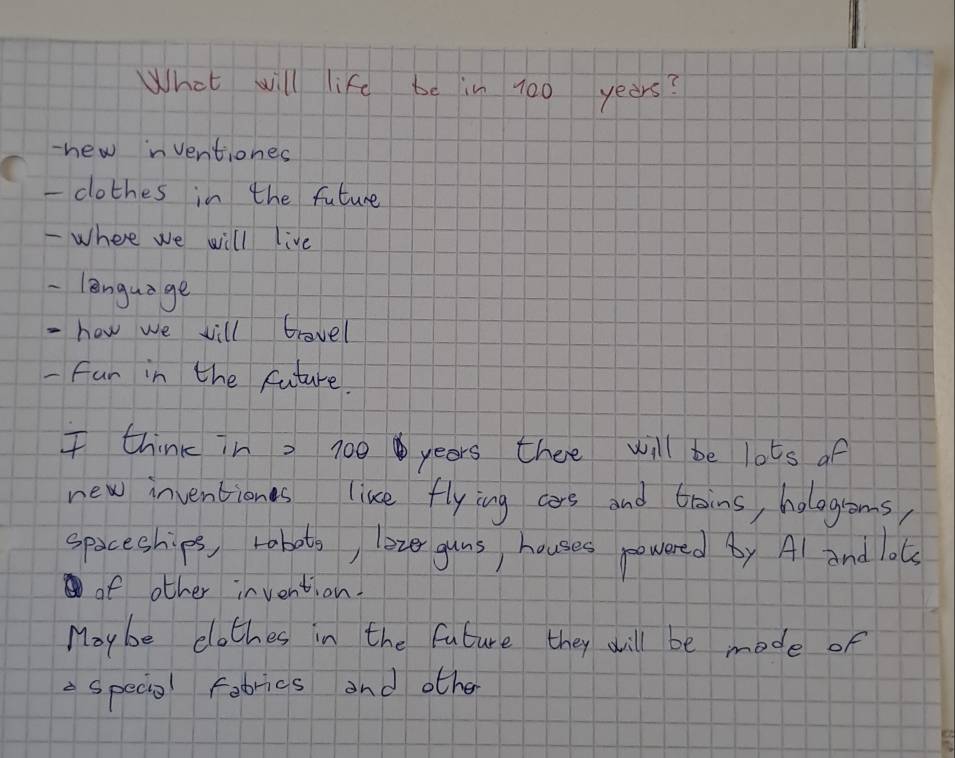 What will life be in 100 years?
-new inventiones
- clothes in the future
- where we will live
- language
- how we will travel
- fun in the future.
I think in a 100 years there will be lots of
new inventiones like flying cars and trains, holograms,
spaceships, robots, lazer guns, houses powered by AI and lots
of other invention.
Maybe clothes in the future they will be made of
a special fabrics and other